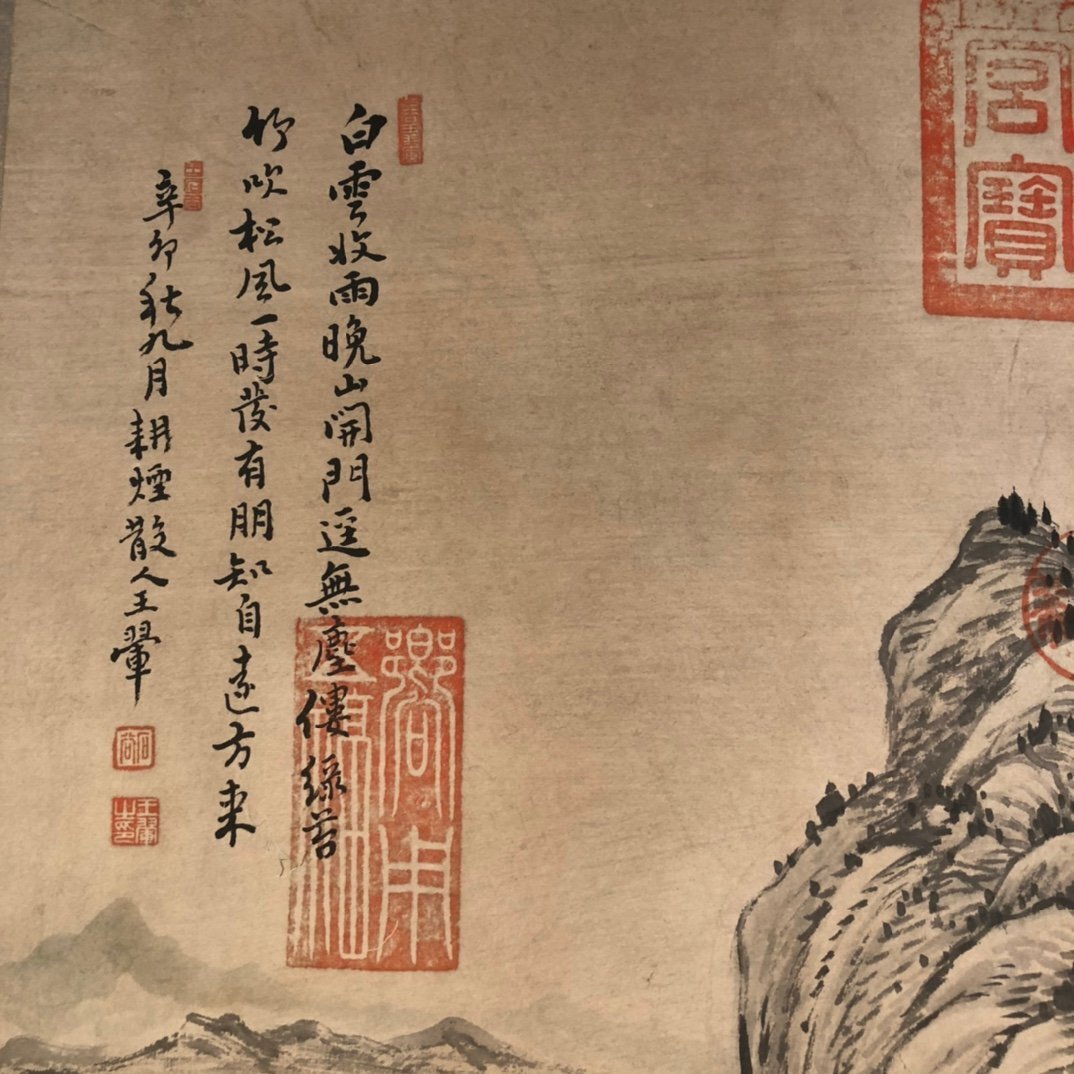 宮寶
白雲收雨晚山開門逕無塵僂綠苔
竹吹松風一時發有朋知自遠方來
辛卯秋九月耕煙散人王翬
石谷
王翬之印